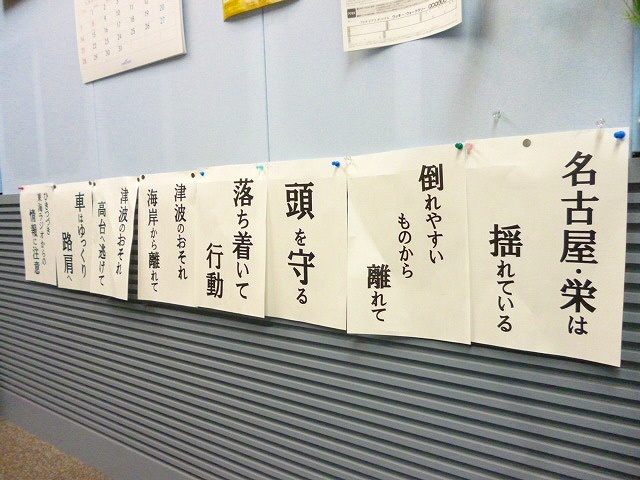 名古屋・栄は
揺れている
倒れやすい
ものから
離れて
頭を守る
落ち着いて
行動
津波のおそれ
海岸から離れて
津波のおそれ
高台へ逃げて
車はゆっくり
路肩へ
ひきつづき
東海ラジオからの
情報に注意